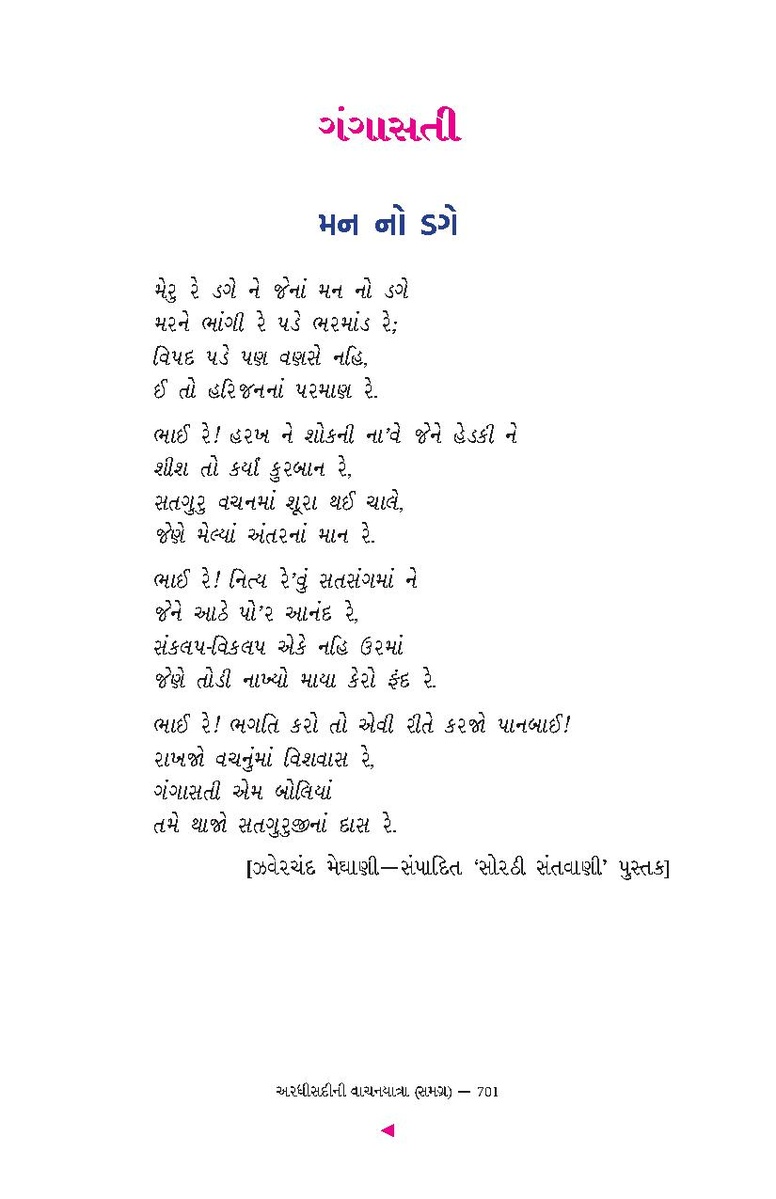 ગંગાસતી
મન નો ડગે
મેરુ રે ડગે ને જેનાં મન નો ડગે
મરને ભાંગી રે પડે ભરમાંડ રે;
વિપદ પડે પણ વણસે નહિ,
ઈ તો હરિજનનાં પરમાણ રે.
ભાઈ રે! હરખ ને શોકની ના’વે જેને હેડકી ને
શીશ તો કર્યાં કુરબાન રે,
સતગુરુ વચનમાં શૂરા થઈ ચાલે,
જેણે મેલ્યાં અંતરનાં માન રે.
ભાઈ રે! નિત્ય રે’વું સતસંગમાં ને
જેને આઠે પો’ર આનંદ રે,
સંકલપ-વિકલપ એકે નહિ ઉરમાં
જેણે તોડી નાખ્યો માયા કેરો ફંદ રે.
ભાઈ રે! ભગતિ કરો તો એવી રીતે કરજો પાનબાઈ!
રાખજો વચનુંમાં વિશવાસ રે,
ગંગાસતી એમ બોલિયાં
તમે થાજો સતગુરુજીનાં દાસ રે.
[ઝવેરચંદ મેઘાણી—સંપાદિત ‘સોરઠી સંતવાણી’ પુસ્તક]
અરધીસદીની વાચનયાત્રા (સમગ્ર) — 701